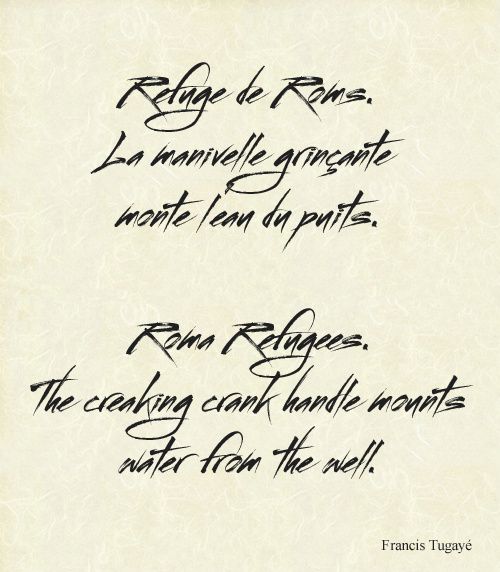 Refuge de Roms.
La manivelle grinçante
monte l'eau du puits.
Roma Refugees.
The creaking crank handle mounts
water from the well.
Francis Tugayé